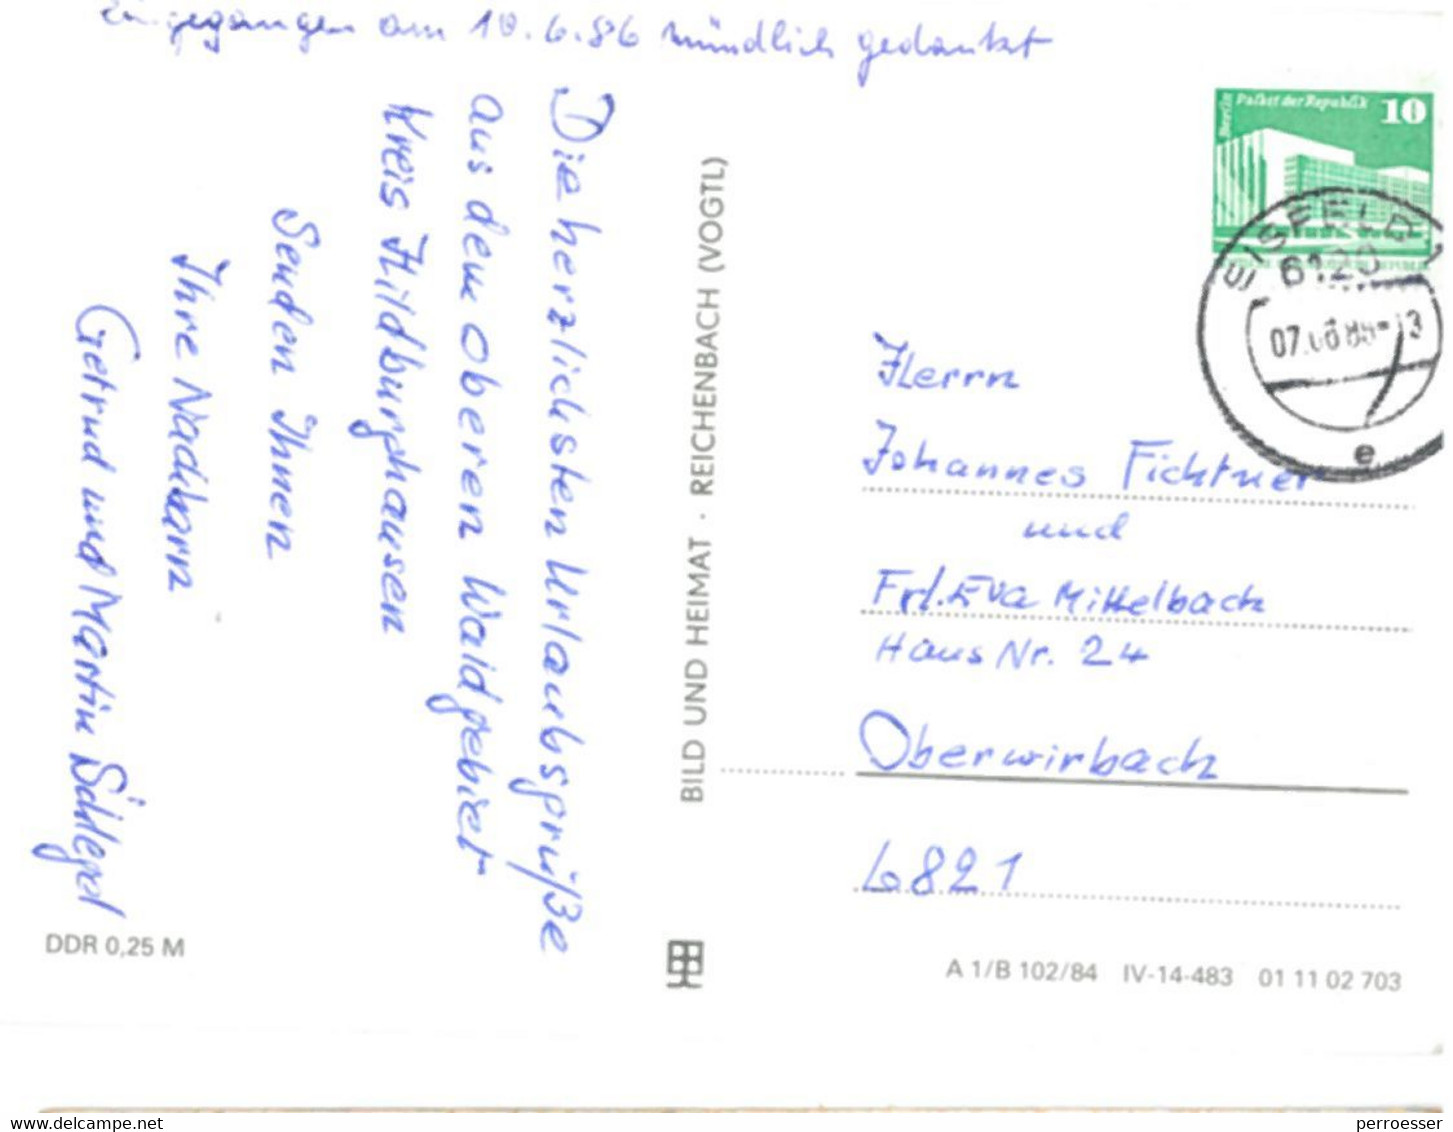 Eingegangen am 10.6.86 mündlich gedankt
Die herzlichsten Urlaubsgrüße
aus dem oberen Waldgebiet
Kreis Hildburghausen
Senden Ihnen
Ihre Nachbarn
Gertrud und Martin Schlegel
DDR 0,25 M
BILD UND HEIMAT · REICHENBACH (VOGTL)
Berlin
Palast der Republik
10
EISFELD 1
6120
Herrn
Johannes Fichtner
und
Frl. Eva Mittelbach
Haus Nr. 24
Oberwirbach
6821
A 1/B 102/84 IV-14-483 01 11 02 703
www.delcampe.net
perroesser